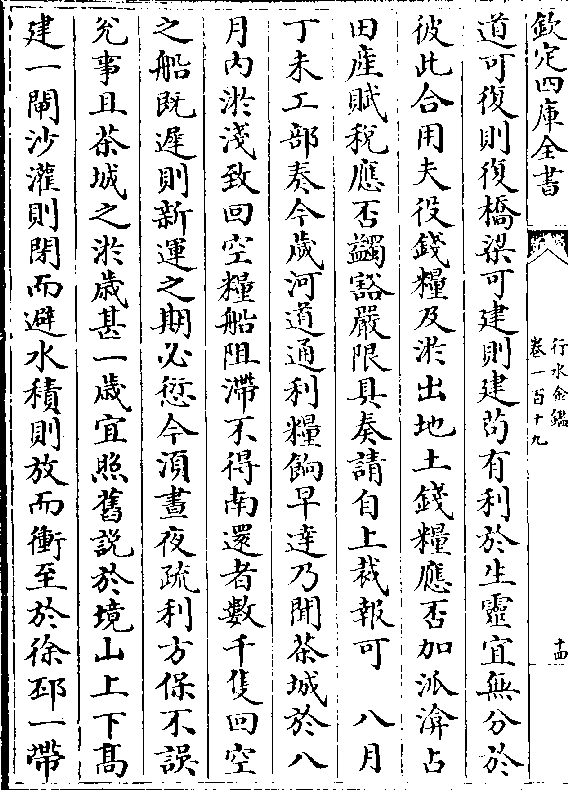 欽定四庫全書
行水金鑑
卷一百十九
十四
道可復則復橋梁可建則建苟有利於生靈宜無分於
彼此合用夫役錢糧及淤出地土錢糧應否加派渰占
田産賦税應否蠲豁嚴限具奏請自上裁報可　八月
丁未工部奏今歲河道通利糧餉早達乃聞茶城於八
月內淤淺致回空糧船阻滯不得南還者數千隻回空
之船既遲則新運之期必愆今湏晝夜疏利方保不誤
兊事且茶城之淤歲甚一歲宜照舊說於境山上下髙
建一閘沙灌則閉而避水積則放而衝至於徐邳一帶